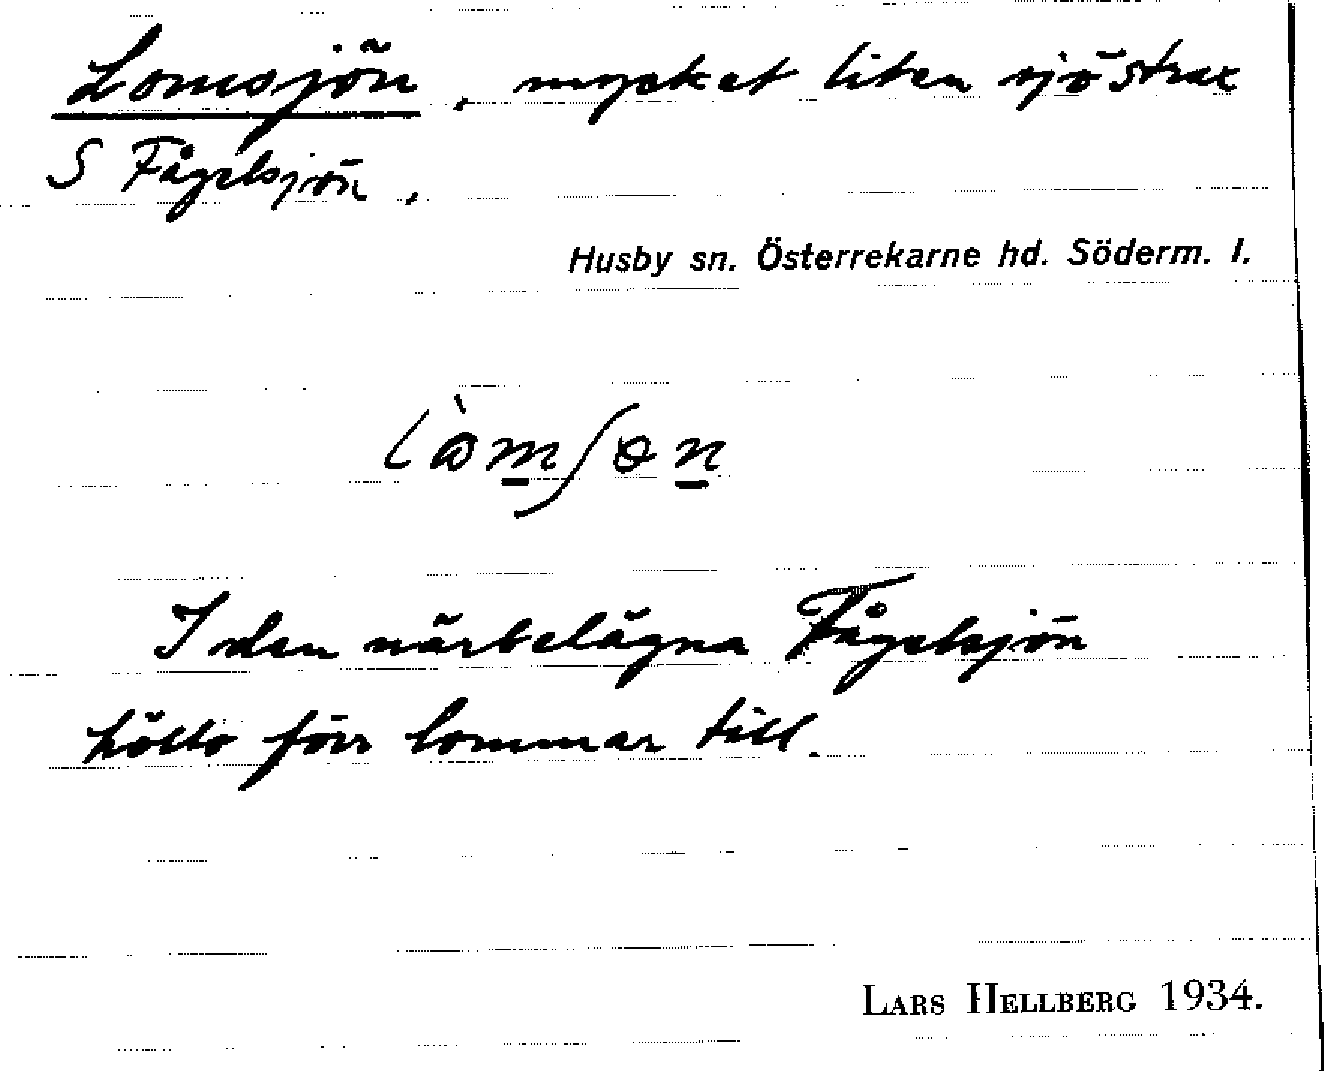 Lomsjön, mycket liten sjö strax
S Fågelsjön.
Husby sn. Österrekarne hd. Söderm. l.
I den närbelägna Fågelsjön
höllo förr lommar till.
LARS HELLBERG 1934.